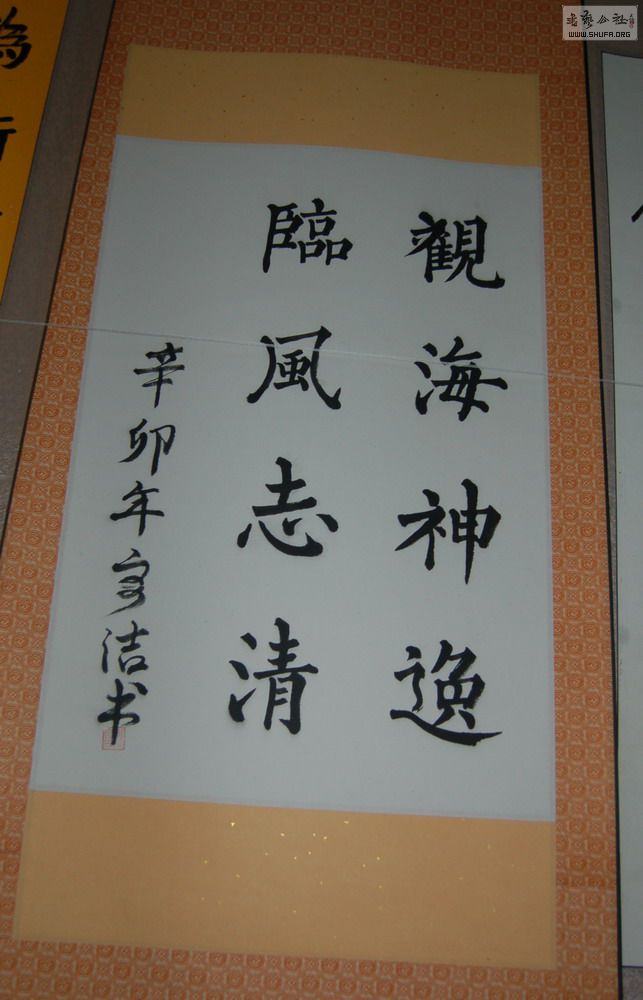 觀海神逸
臨風志清
辛卯年
洁书
書藝公社
WWW.SHUFA.ORG